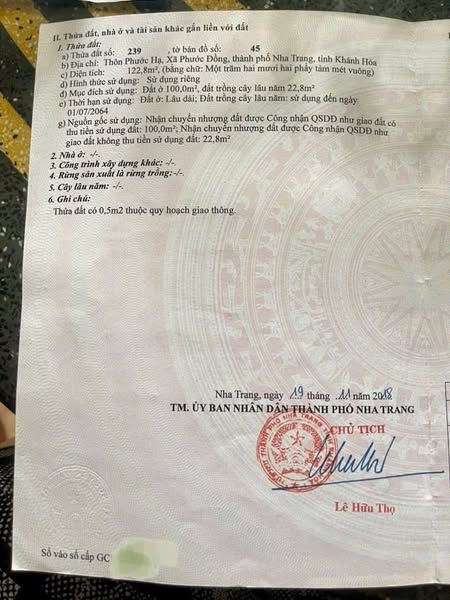 II. Thửa đất, nhà ở và tài sản khác gắn liền với đất
1. Thửa đất:
a) Thửa đất số: 239 , tờ bản đồ số: 45
b) Địa chỉ: Thôn Phước Hạ, Xã Phước Đồng, thành phố Nha Trang, tỉnh Khánh Hòa
c) Diện tích: 122,8m², (bằng chữ: Một trăm hai mươi hai phẩy tám mét vuông)
d) Hình thức sử dụng: Sử dụng riêng
đ) Mục đích sử dụng: Đất ở 100,0m², đất trồng cây lâu năm 22,8m²
e) Thời hạn sử dụng: Đất ở: Lâu dài; Đất trồng cây lâu năm: sử dụng đến ngày
01/07/2064
g) Nguồn gốc sử dụng: Nhận chuyển nhượng đất được Công nhận QSDĐ như giao đất có
thu tiền sử dụng đất: 100,0m²; Nhận chuyển nhượng đất được Công nhận QSDĐ như
giao đất không thu tiền sử dụng đất: 22,8m²
2. Nhà ở: -/-.
3. Công trình xây dựng khác: -/-.
4. Rừng sản xuất là rừng trồng: -/-.
5. Cây lâu năm: -/-.
6. Ghi chú:
Thửa đất có 0,5m2 thuộc quy hoạch giao thông.
Nha Trang, ngày 19 tháng 11 năm 2018
TM. ỦY BAN NHÂN DÂN THÀNH PHỐ NHA TRANG
CHỦ TỊCH
Lê Hữu Thọ
Số vào sổ cấp GC